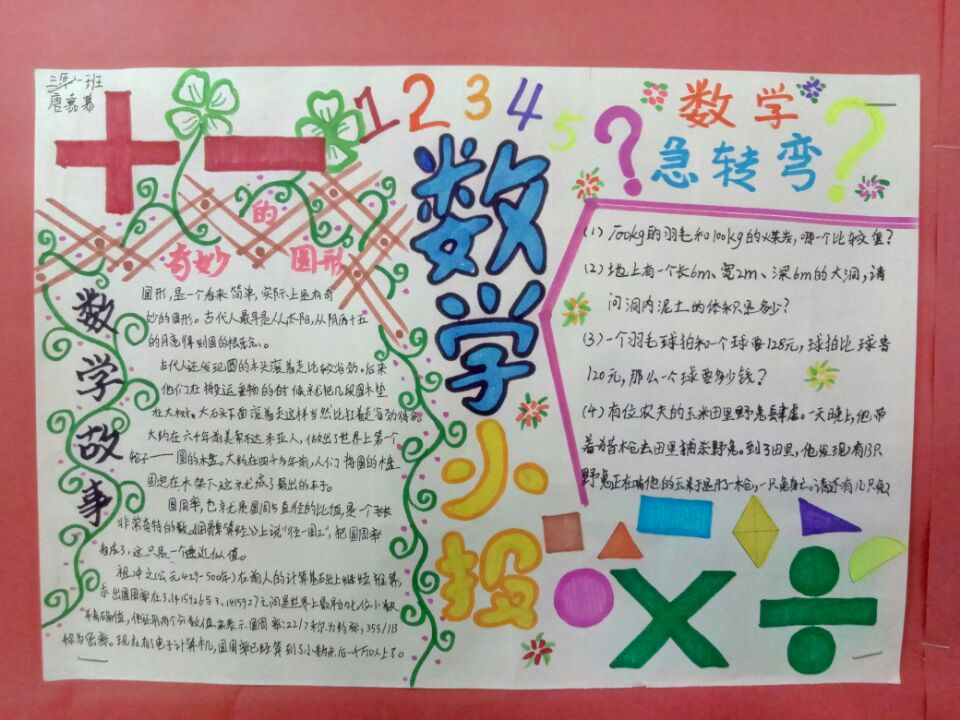 三年一班
唐嘉慕
1 2 3 4 5
数学小报
奇妙的圆形
数学故事
圆形,是一个看来简单,实际上是有奇
妙的圆形。古代人最早是从太阳,从阴历十五
的月亮得到圆的概念。
古代人还发现圆的木头滚着走比较省劲。后来
他们在搬运重物的时候就把几段圆木垫
在大树、大石头下面滚着走这样当然比扛着走省劲得多
大约在六千年前美索不达米亚人,做出了世界上第一个
轮子——圆的木盘。大约在四千多年前,人们将圆的木盘
固定在木架下这就成了最出的车子。
圆周率,也就是圆周与直径的比值,是一个
非常奇特的数。《周髀算经》上说"径一周三",把圆周率
看成3,这只是一个近似值。
祖冲之(公元429-500年)在前人的计算基础上继续推算,
求出圆周率在3.1415926与3.1415927之间是世界上最早的七位小数
精确值,他还用两个分数值来表示圆周率:22/7称为约率,355/113
称为密率。现在有了电子计算机,圆周率已经算到了小数点后一千万以上了。
? 数学
急转弯 ?
(1)100kg的羽毛和100kg的煤炭,哪一个比较重?
(2)地上有一个长6m、宽2m、深6m的大洞,请
问洞内泥土的体积是多少?
(3)一个羽毛球拍和一个球要128元,球拍比球贵
120元,那么一个球要多少钱?
(4)有位农夫的玉米田里野兔肆虐。一天晚上,他带
着猎枪去田里捕杀野兔。到了田里,他发现有13只
野兔正在啃他的玉米于是开了一枪,一只兔身亡。请还有几只兔?